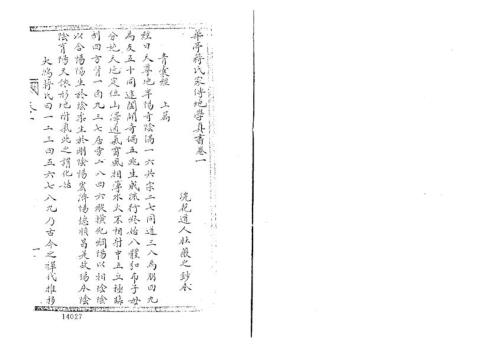 華亭蔣氏家傳地學真書卷一
浣花道人杜薇之鈔本
青囊經 上篇
經曰天尊地卑陽奇陰偶一六共宗二七同道三八為朋四九
為友五十同途闔闢奇偶五兆生成流行終始八體弘布子母
分施天地定位山澤通氣雷風相薄水火不相射中五立極臨
制四方背一面九三七居旁二八四六縱橫紀綱陽以相陰陰
以含陽陽生於陰柔生於剛陰德宏濟陽德順昌是故陽本陰
陰育陽天依形地附氣此之謂化始
大鴻蔣氏曰一二三四五六七八九乃古今之禪代推移
卷一
一
14027